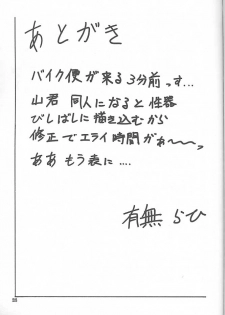 あとがき
バイク便が来る3分前っす…
山君 同人になると性器
びしばしに描き込むから
修正でエライ時間がぁ〜〜っ
ああ もう表に ….
有無らひ